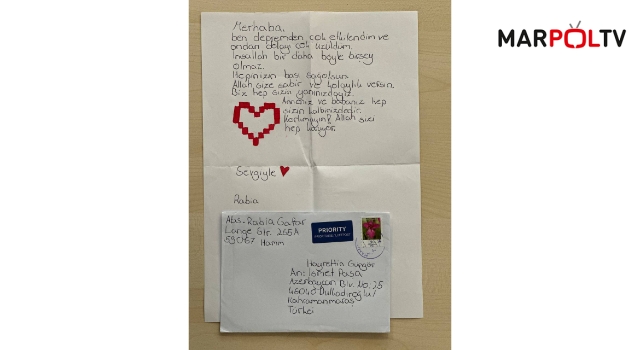 MARPOLTV
Merhaba,
ben depremden çok etkilendim ve
ondan dolayı çok üzüldüm.
İnşallah bir daha böyle birşey
olmaz.
Hepinizin baş sağolsun
Allah size sabır ve kolaylık versin.
Biz hep sizin yanınızdayız.
Anneniz ve babanız hep
sizin kalbinizdedir.
Korkmayın! Allah sizi
hep koruyor.
Sevgiyle
Rabia
Abs. Rabia Gaffar
Lange Str. 265A
59067 Hamm
PRIORITY
Hayrettin Güngör
An: İsmet Paşa
Azerbaycan Blv. No. 25
46040 Dulkadiroğlu/
Kahramanmaraş
Türkei